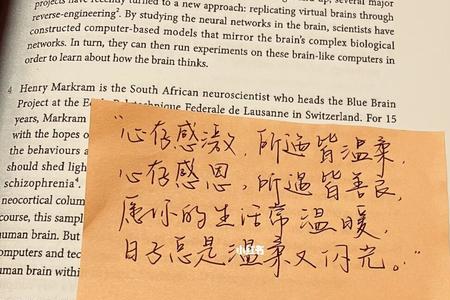 projects have recently turned to a new approach: replicating virtual brains through
reverse-engineering². By studying the neural networks in the brain, scientists have
constructed computer-based models that mirror the brain's complex biological
networks. In turn, they can then run experiments on these brain-like computers in
order to learn about how the brain thinks.
4 Henry Markram is the South African neuroscientist who heads the Blue Brain
Project at the Polytechnique Federale de Lausanne in Switzerland. For 15
years, Markram
with the hopes o
the behaviours a
should shed ligh
schizophrenia⁴.
neocortical colum
course, this sampl
human brain. But
omputers and tec
uman brain withi
"心存感激,所遇皆温柔,
心存感恩,所遇皆善良,
愿你的生活常温暖,
日子总是温柔又闪光。"
小红书